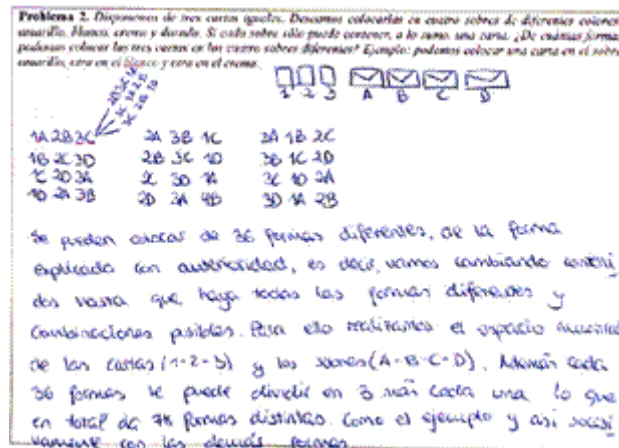 Problema 2. Disponemos de tres cartas iguales. Deseamos colocarlas en cuatro sobres de diferentes colores:
amarillo, blanco, crema y dorado. Si cada sobre sólo puede contener, a lo sumo, una carta. ¿De cuántas formas
podemos colocar las tres cartas en los cuatro sobres diferentes? Ejemplo: podemos colocar una carta en el sobre
amarillo, otra en el blanco y otra en el crema.
1 2 3 A B C D
1A 2B 3C 2A 3B 1C 3A 1B 2C
1B 2C 3D 2B 3C 1D 3B 1C 2D
1C 2D 3A 2C 3D 1A 3C 1D 2A
1D 2A 3B 2D 3A 3D 1A 2B
Se pueden colocar de 36 formas diferentes, de la forma
explicada con anterioridad, es decir, vamos cambiando
dos hasta que haya todas las formas diferentes y
combinaciones posibles. Para ello realizamos el espacio muestral
de las cartas (1-2-3) y los sobres (A-B-C-D). cada
36 formas se puede dividir en 3 más cada una lo que
en total da formas distintas. Como el ejemplo y así sucesi
vamente con las demás formas